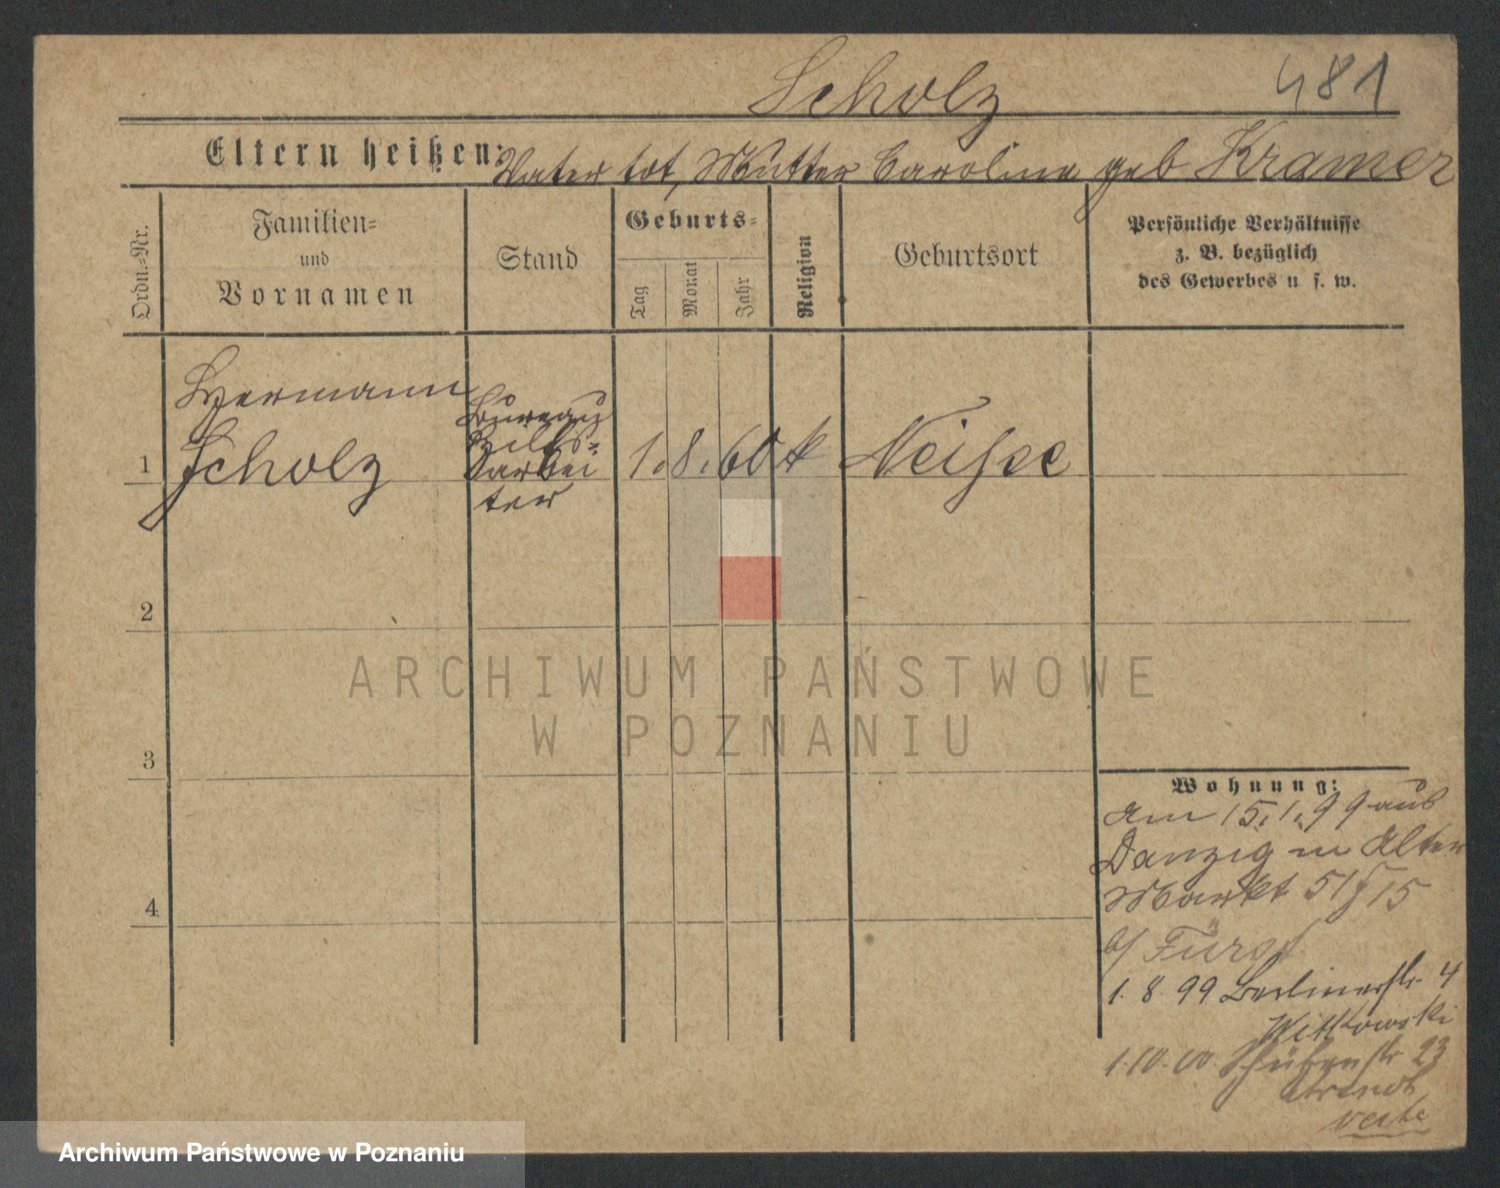 Scholz 481
Eltern heißen: Vater tot, Mutter Carolina geb Kramer
Ordn.=Nr.
Familien=
und
Vornamen
Stand
Geburts=
Tag
Monat
Jahr
Religion
Geburtsort
Persönliche Verhältnisse
z. B. bezüglich
des Gewerbes u s. w.
Hermann
Scholz
Bureau
Hilfs=
arbei
ter
1 1. 8. 60 k Neisse
2
3
4
ARCHIWUM PAŃSTWOWE
W POZNANIU
Wohnung:
Am 15.1.99 aus
Danzig in Alter
Markt 51
b/
1. 8. 99 Berlinerstr. 4
Witkowski
1.10.00. Schützenstr 23
verte
Archiwum Państwowe w Poznaniu